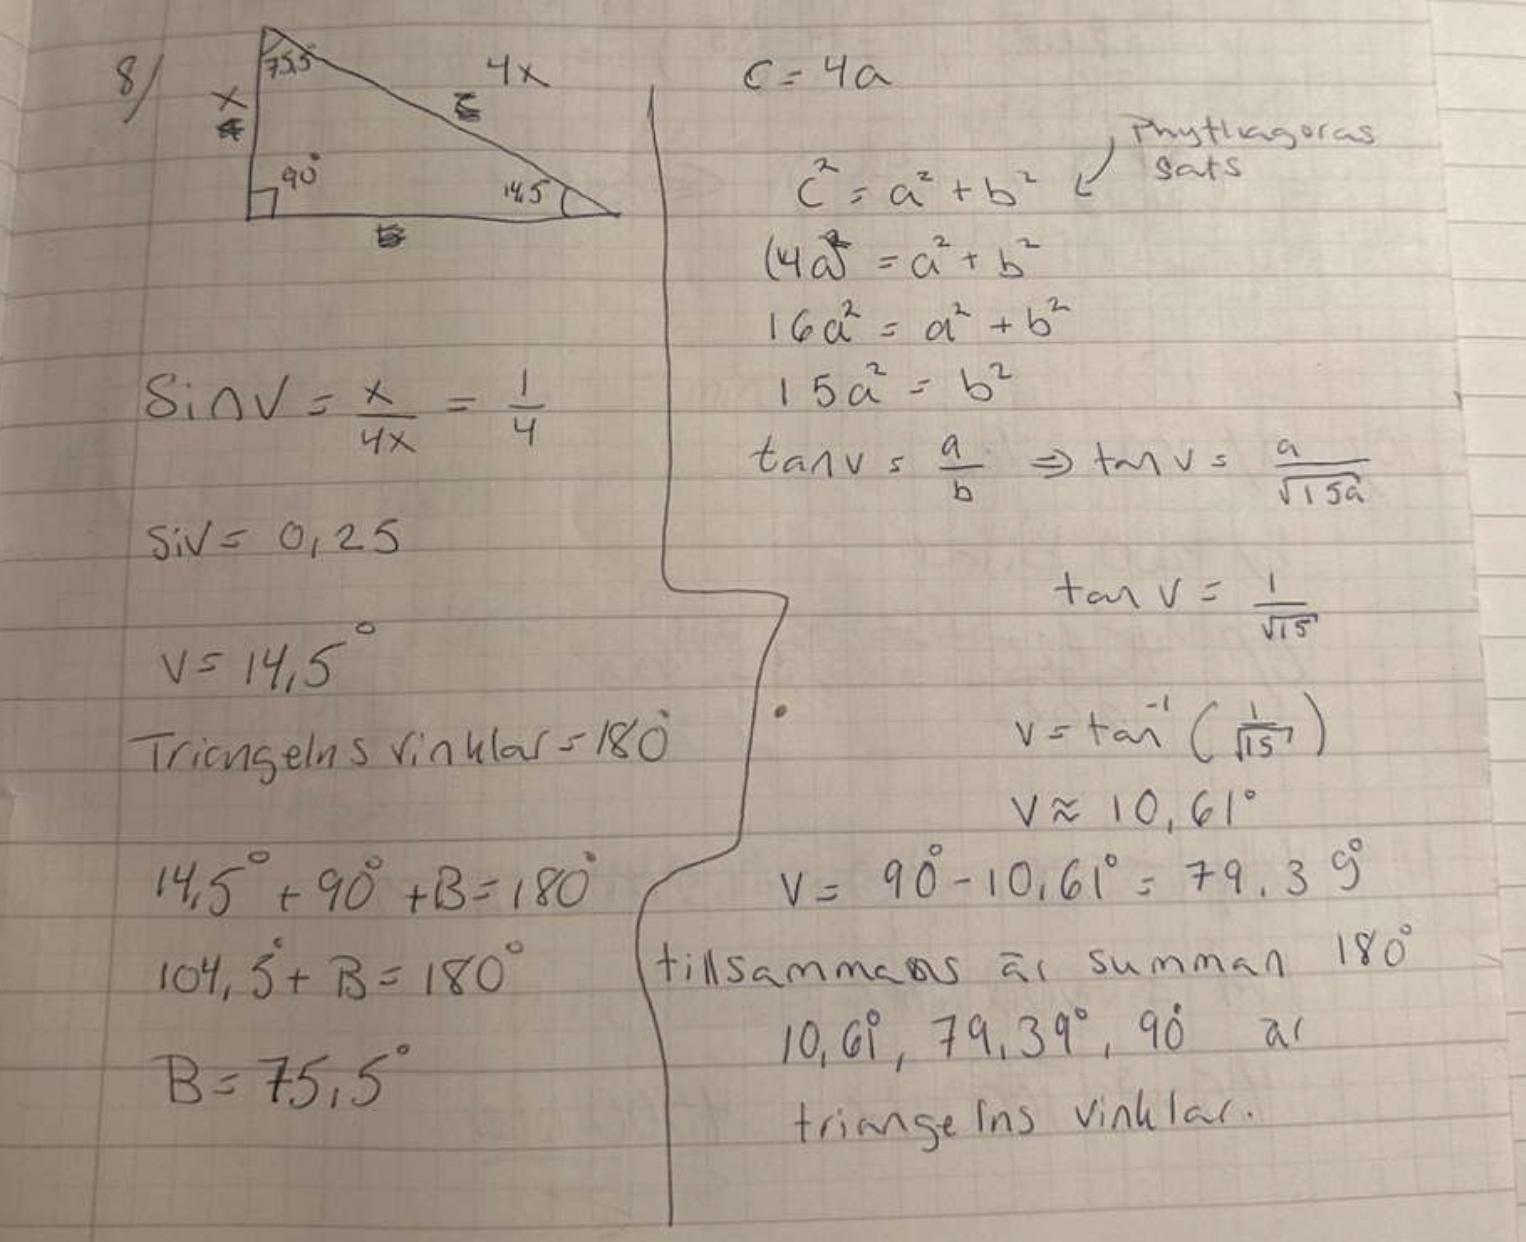 8/
75,5
x
4x
90°
14,5
Sinv = x/4x = 1/4
Siv = 0,25
v = 14,5°
Triangelns vinklar = 180°
14,5° + 90° + B = 180°
104,5° + B = 180°
B = 75,5°
C = 4a
Phythagoras
sats
C² = a² + b²
(4a)² = a² + b²
16a² = a² + b²
15a² = b²
tanv = a/b ⇒ tanv = a/√15a
tan v = 1/√15
v = tan⁻¹ (1/√15)
v ≈ 10,61°
v = 90° - 10,61° = 79,39°
tillsammans är summan 180°
10,61°, 79,39°, 90° är
triangelns vinklar.